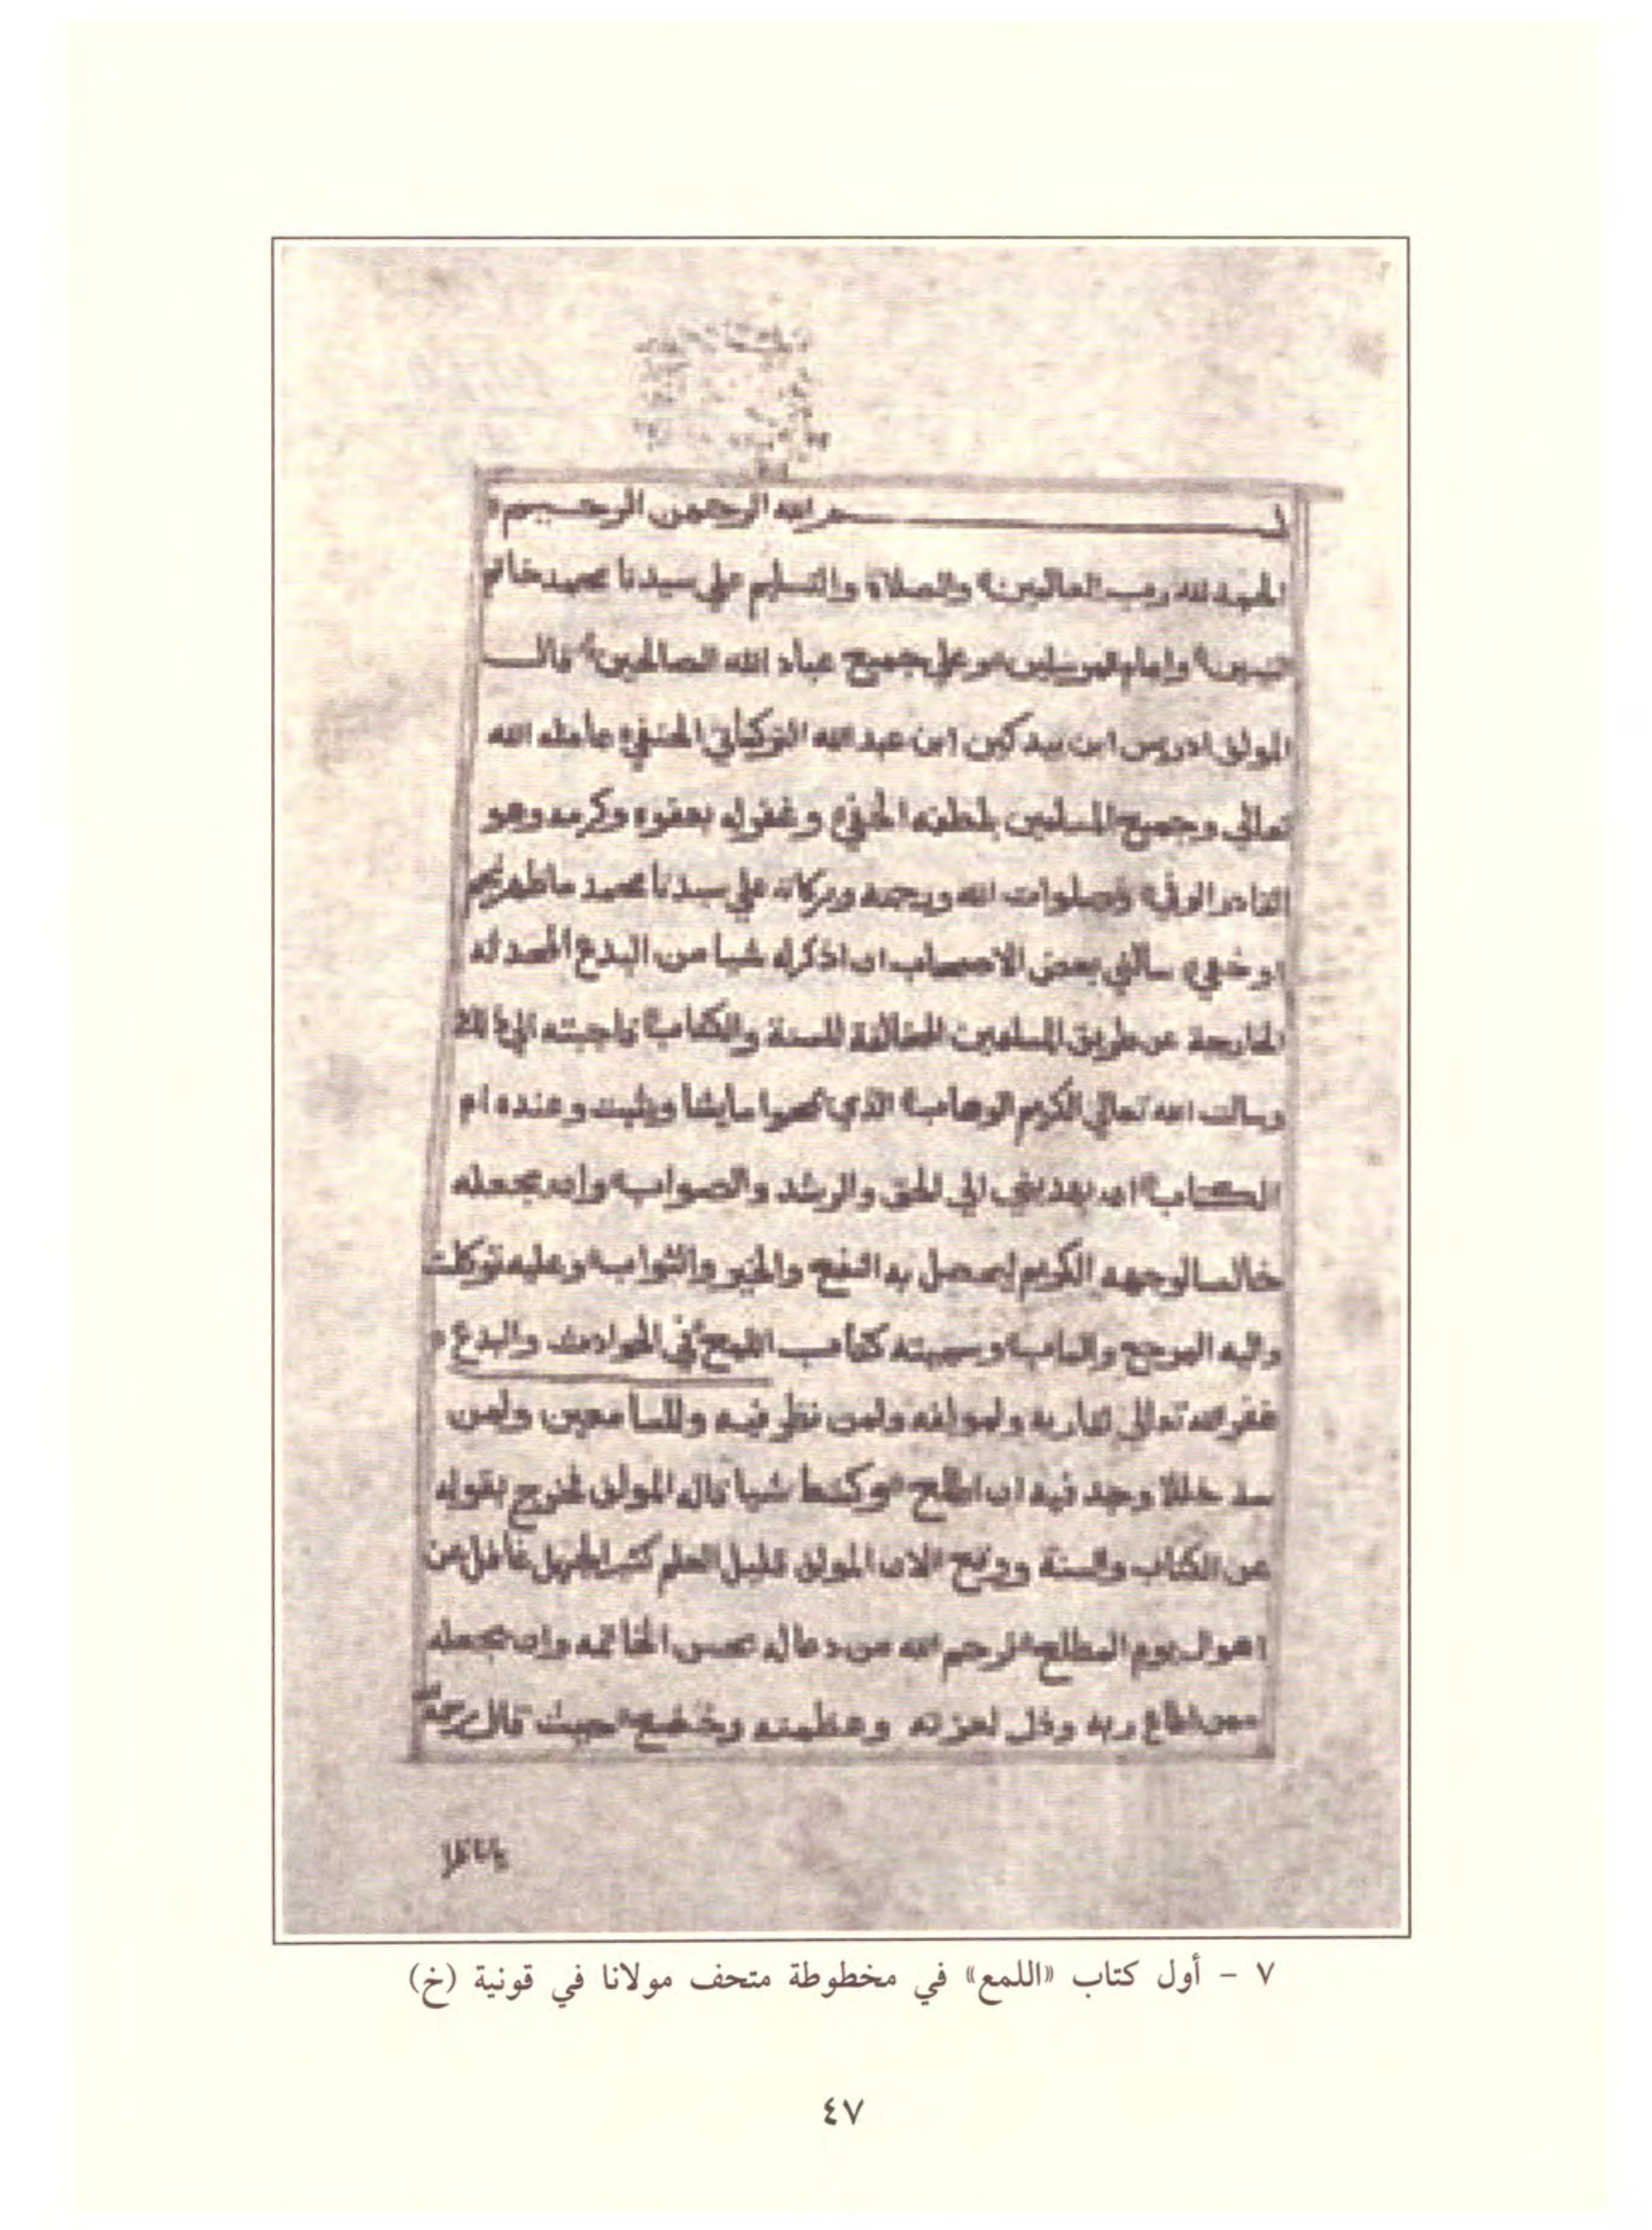 بسم الله الرحمن الرحيم
الحمد لله رب العالمين والصلاة والتسليم علي سيدنا محمد خاتم
النبيين وامام المرسلين وعلي جميع عباد الله الصالحين قال
المولف ادريس ابن بيدكين ابن عبد الله التركماني الحنفي عامله الله
تعالي وجميع المسلمين بلطفه الخفي وغفر له بعفوه وكرمه وهو
القادر الوفي وصلوات الله ورحمته وبركاته علي سيدنا محمد ما ظهر نجم
او خفي سالني بعض الاصحاب ان اذكر له شيا من البدع المحدثه
الخارجة عن طريق المسلمين المخالفة للسنة والكتاب فاجبته الي ذلك
وسالت الله تعالي الكريم الوهاب الذي يمحوا ما يشا ويثبت وعنده ام
الكتاب ان يهديني الي الحق والرشد والصواب وان يجعله
خالصا لوجهه الكريم ليحصل به النفع والخير والثواب وعليه توكلت
واليه المرجع والماب وسميته كتاب اللمع في الحوادث والبدع
غفر الله تعالي لقاريه ولمولفه ولمن نظر فيه وللسامعين ولمن
سد خللا وجد فيه ان اطلع وكشط شيا قاله المولف فخرج بقوله
عن الكتاب والسنة ورقع لان المولف قليل العلم كثير الجهل غافل عن
اهوال يوم المطلع فرحم الله من دعا له بحسن الخاتمه وان يجعله
ممن اطاع ربه وذل لعزته وعظمته وخضع حيث قال
٧ - أول كتاب «اللمع» في مخطوطة متحف مولانا في قونية (خ)
٤٧